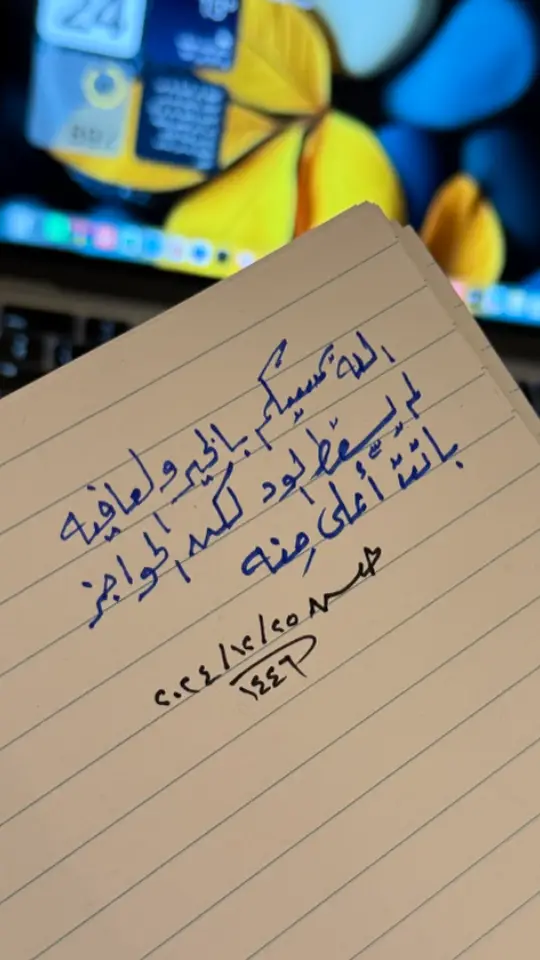 24
الله يمسيكم بالخير ولعافيه
لم يسقط الود لكن الحواجز
باتت أعلى منه
٢٠٢٤/١٢/٢٥
١٤٤٦